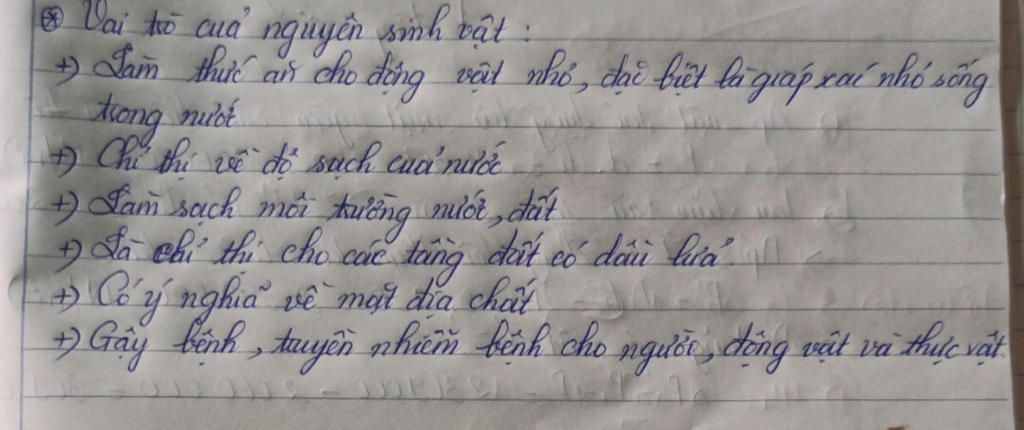 ⊛ Vai trò của nguyên sinh vật :
+) Làm thức ăn cho động vật nhỏ, đặc biệt là giáp xác nhỏ sống
trong nước
+) Chỉ thị về độ sạch của nước
+) Làm sạch môi trường nước, đất
+) Là chỉ thị cho các tầng đất có dầu lửa.
+) Có ý nghĩa về mặt địa chất
+) Gây bệnh, truyền nhiễm bệnh cho người, động vật và thực vật.